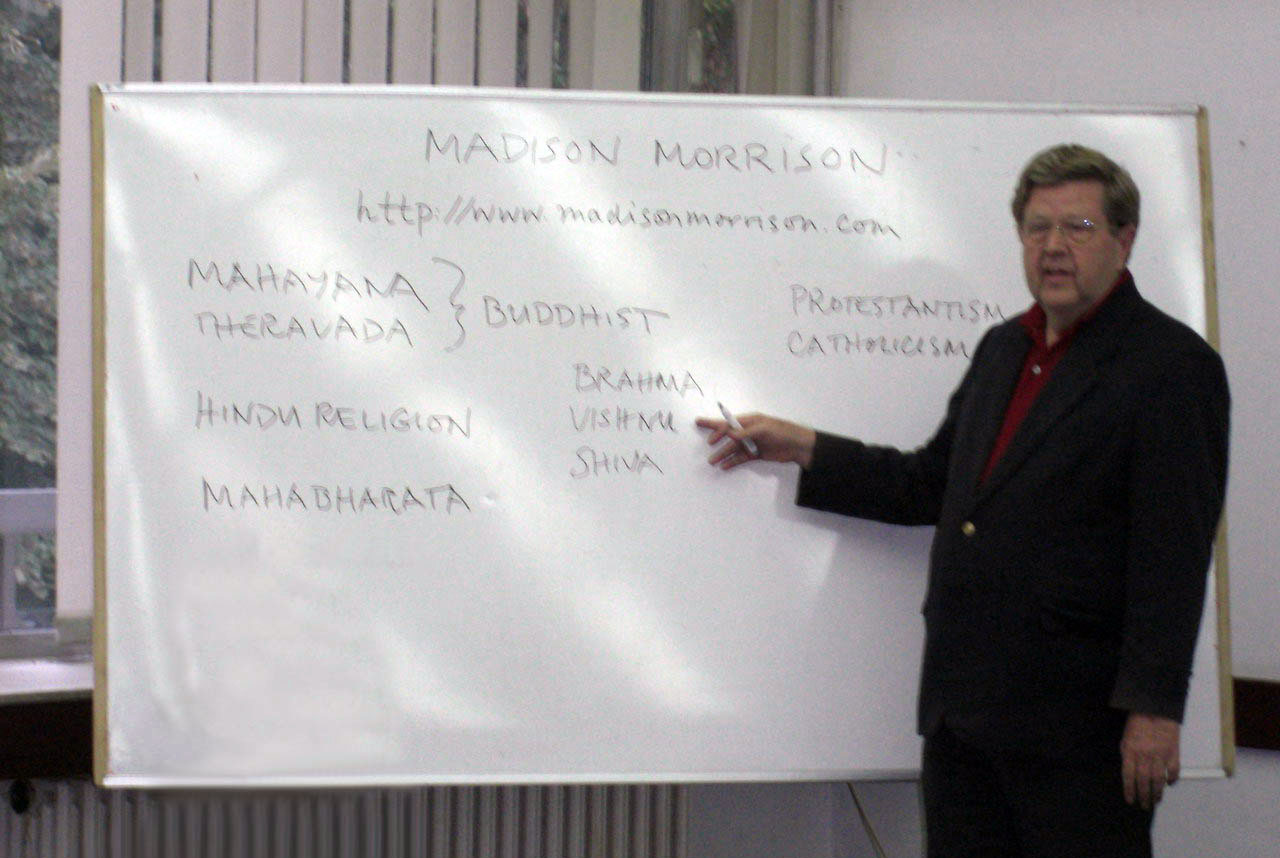 MADISON MORRISON
http://www.madisonmorrison.com
MAHAYANA
THERAVADA
BUDDHIST
PROTESTANTISM
CATHOLICISM
HINDU RELIGION
BRAHMA
VISHNU
SHIVA
MAHABHARATA